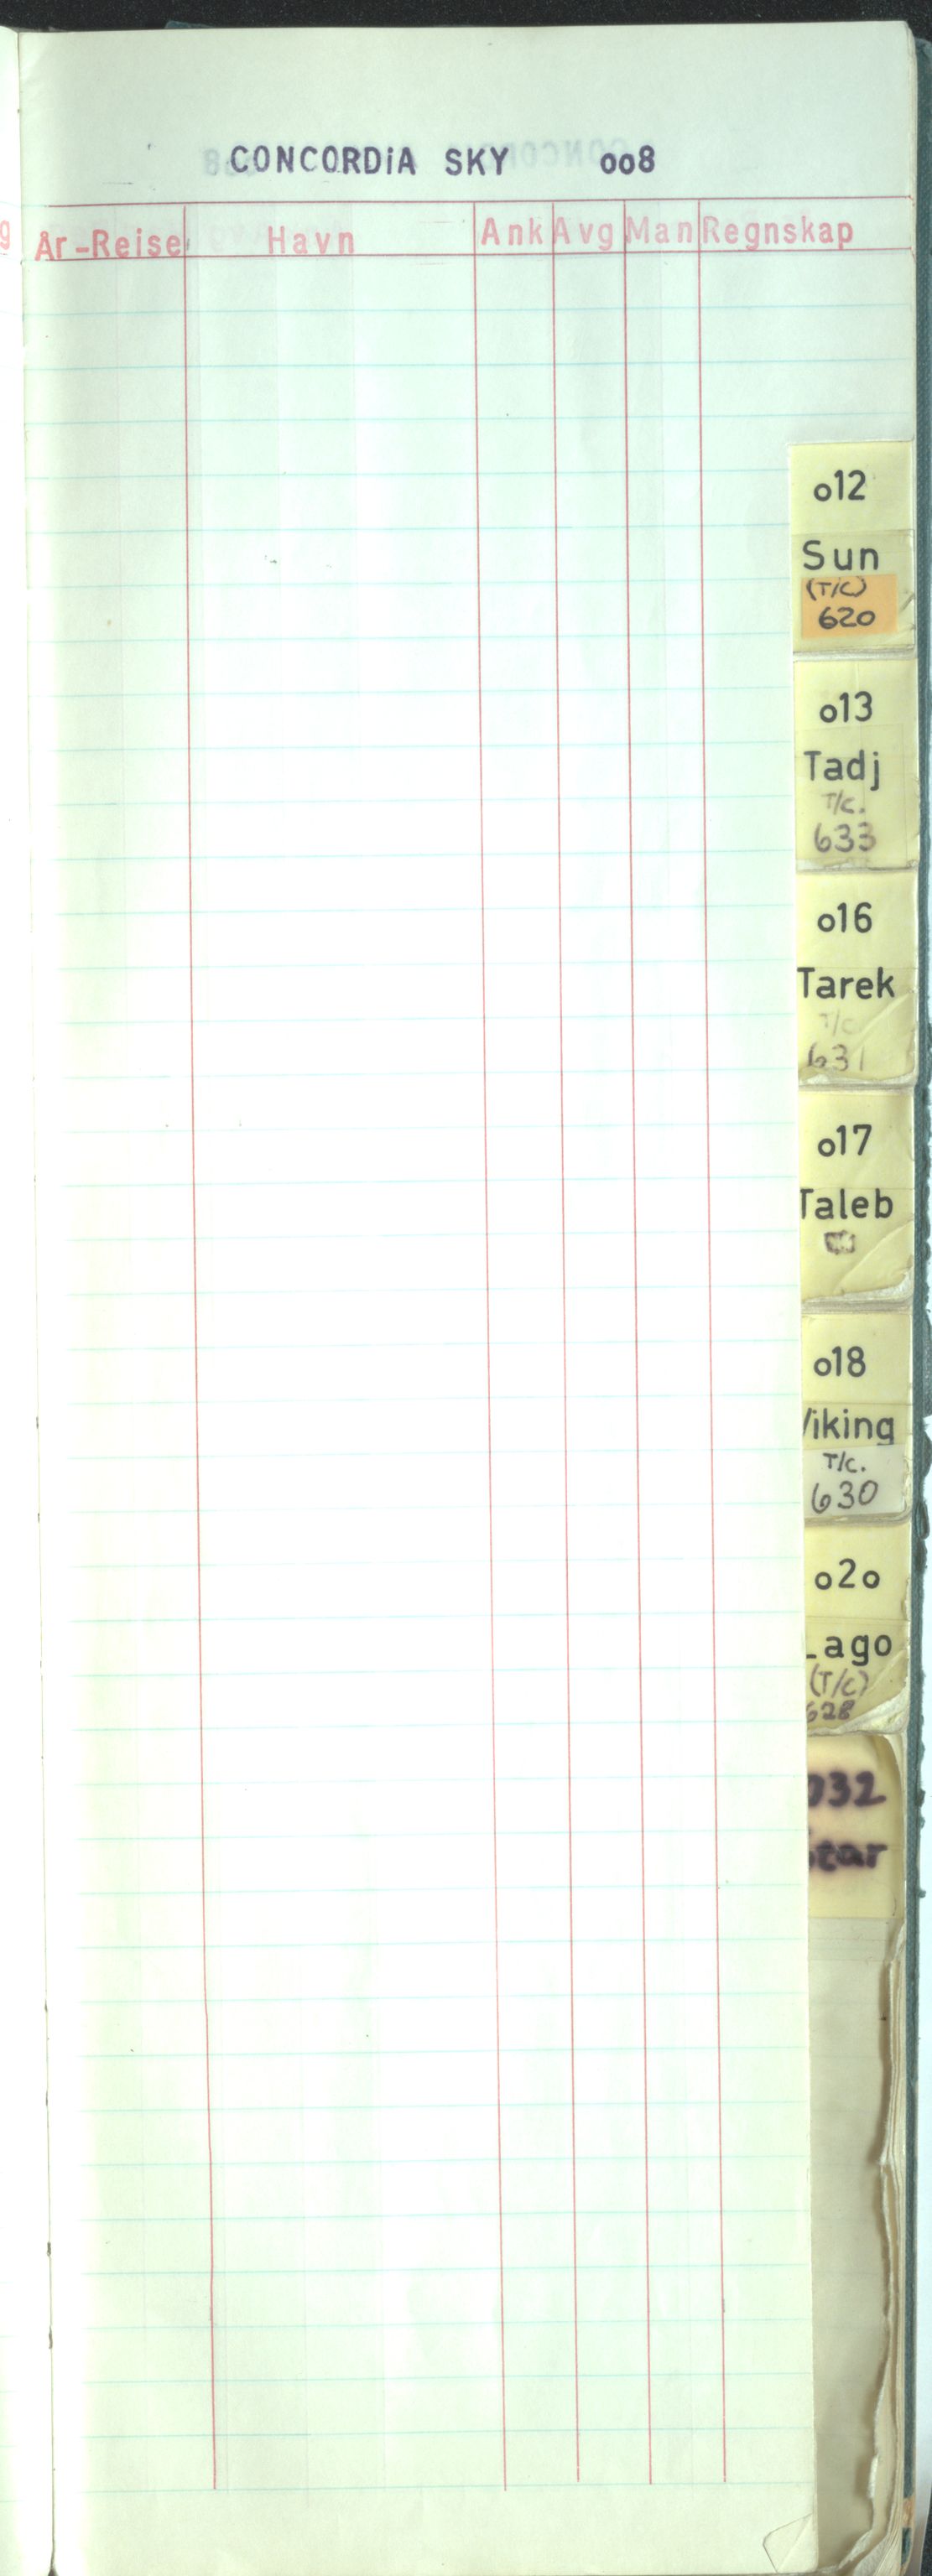 CONCORDiA SKY oo8
g År-Reise Havn Ank Avg Man Regnskap
o12
Sun
(T/C)
620
o13
Tadj
T/c.
633
o16
Tarek
T/c
631
o17
Taleb
o18
Viking
T/c.
630
o2o
Lago
(T/c)
628
032
Star